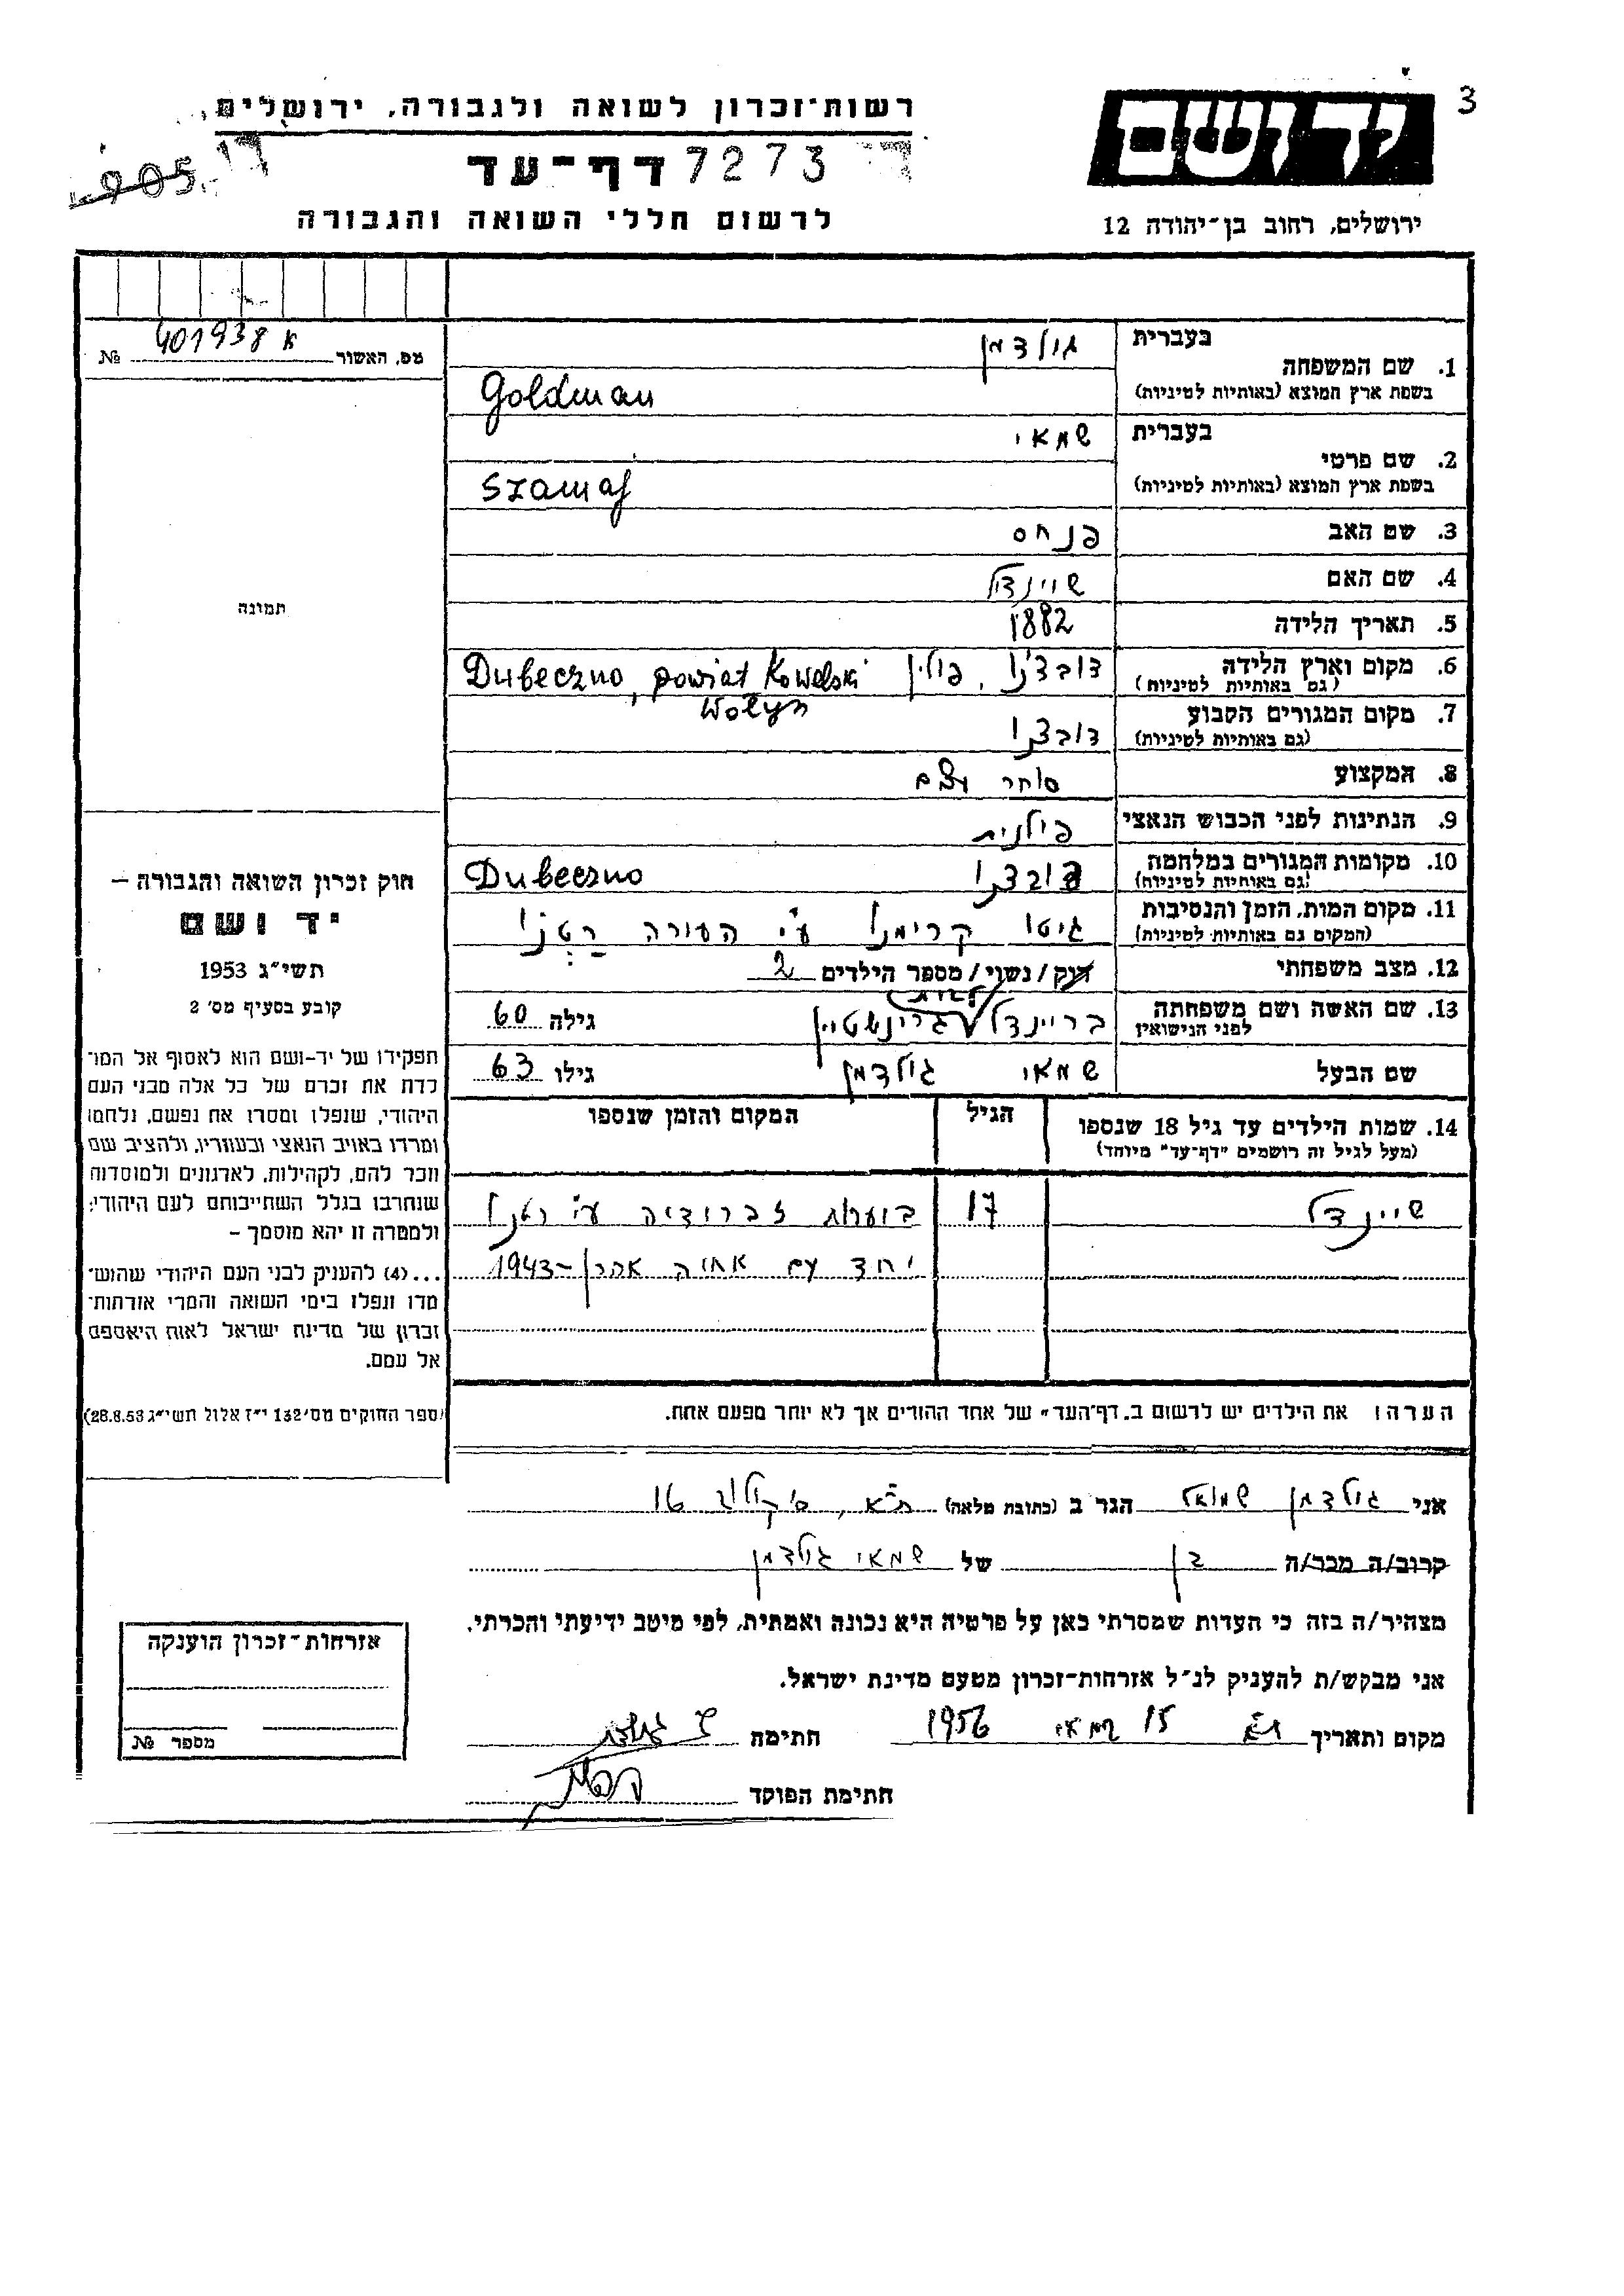 3
רשות־זכרון לשואה ולגבורה, ירושלים,
יד ושם
דף־עד 7273
905
לרשום חללי השואה והגבורה
ירושלים, רחוב בן־יהודה 12
מס. האשור 401938 א №
תמונה
חוק זכרון השואה והגבורה –
יד ושם
תשי״ג 1953
קובע בסעיף מס׳ 2
תפקידו של יד-ושם הוא לאסוף אל המו־
לדת את זכרם של כל אלה מבני העם
היהודי, שנפלו ומסרו את נפשם, נלחמו
ומרדו באויב הנאצי ובעוזריו, ולהציב שם
וזכר להם, לקהילות, לארגונים ולמוסדות
שנחרבו בגלל השתייכותם לעם היהודי;
ולמטרה זו יהא מוסמך –
...(4) להעניק לבני העם היהודי שהוש־
מדו ונפלו בימי השואה והמרי אזרחות־
זכרון של מדינת ישראל לאות היאספם
אל עמם.
(ספר החוקים מס׳ 132 י״ז אלול תשי״ג 28.8.53)
אזרחות־זכרון הוענקה
מספר №
בעברית גולדמן
1. שם המשפחה
בשפת ארץ המוצא (באותיות לטיניות) Goldman
בעברית שמאי
2. שם פרטי
בשפת ארץ המוצא (באותיות לטיניות) Szamaj
3. שם האב פנחס
4. שם האם שיינדל
5. תאריך הלידה 1882
6. מקום וארץ הלידה דובצ'נו, פולין Dubeczno, powiat Kowelski
(גם באותיות לטיניות) Wołyn
7. מקום המגורים הקבוע דובצנו
(גם באותיות לטיניות)
8. המקצוע סוחר
9. הנתינות לפני הכבוש הנאצי פולנית
10. מקומות המגורים במלחמה דובצנו Dubeczno
(גם באותיות לטיניות)
11. מקום המות, הזמן והנסיבות גיטו קרימנו ע״י העורה רטנו
(המקום גם באותיות לטיניות)
12. מצב משפחתי רווק/נשוי/מספר הילדים 2
13. שם האשה ושם משפחתה לפני הנישואין בריינדל לבית גרינשטיין גילה 60
שם הבעל שמאי גולדמן גילו 63
14. שמות הילדים עד גיל 18 שנספו הגיל המקום והזמן שנספו
(מעל לגיל זה רושמים "דף־עד" מיוחד)
שיינדל 17 ביערות זברודיה ע״י רטנו
יחד עם אחיה אהרן – 1943
הערה: את הילדים יש לרשום ב„דף־העד" של אחד ההורים אך לא יותר מפעם אחת.
אני גולדמן שמואל הגר ב (כתובת מלאה) ת״א, סוקולוב 16
קרוב/ה מכר/ה בן של שמאי גולדמן
מצהיר/ה בזה כי העדות שמסרתי כאן על פרטיה היא נכונה ואמתית, לפי מיטב ידיעתי והכרתי.
אני מבקש/ת להעניק לנ״ל אזרחות־זכרון מטעם מדינת ישראל.
מקום ותאריך ת״א 15 במאי 1956 חתימה
חתימת הפוקד